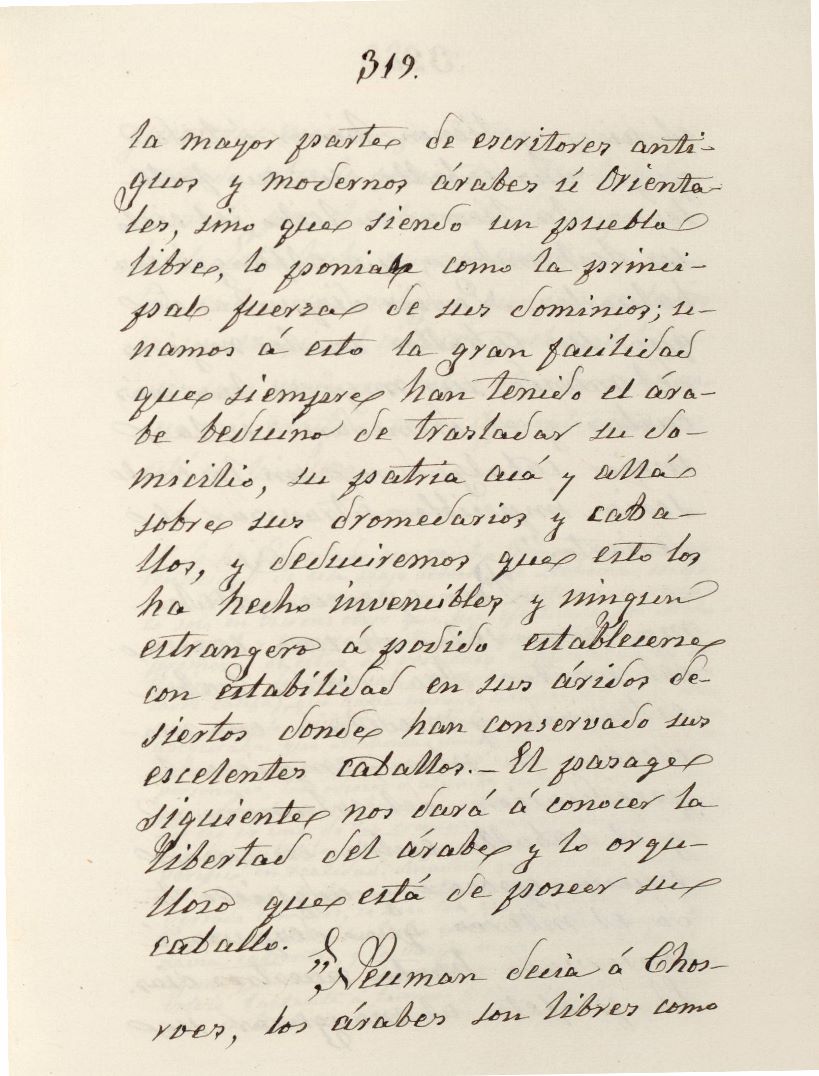 319.
la mayor parte de escritores anti-
guos y modernos árabes ú Orienta-
les, sino que siendo un pueblo
libre, lo ponian como la princi-
pal fuerza de sus dominios; u-
namos á esto la gran facilidad
que siempre han tenido el ára-
be beduino de trasladar su do-
micilio, su patria acá y allá
sobre sus dromedarios y caba-
llos, y deduciremos que esto los
ha hecho invencibles y ningun
estrangero á podido establecerse
con estabilidad en sus áridos de-
siertos donde han conservado sus
escelentes caballos.- El pasage
siguiente nos dará á conocer la
libertad del árabe y lo orgu-
lloso que está de poseer su
caballo.
"Neuman decia á Chos-
roes, los árabes son libres como